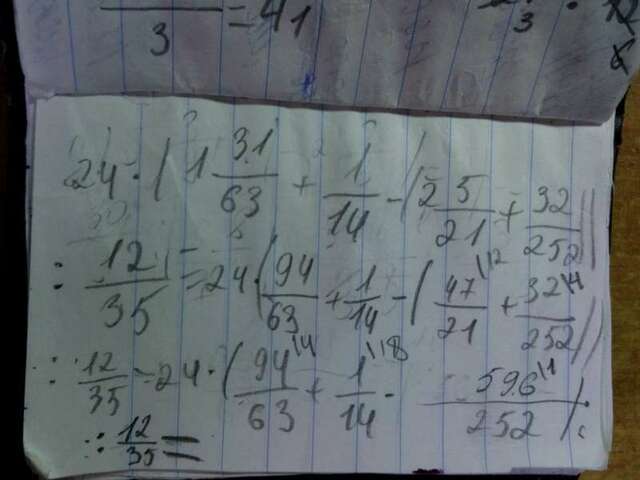 3 = 41 3
24 · ( 1 31/63 + 1/14 - ( 2 5/21 + 32/252 ))
: 12/35 = 24 · ( 94/63 + 1/14 - ( 47\12/21 + 32\1/252 ))
: 12/35 = 24 · ( 94\4/63 + 1\18/14 - 596\1/252 ) :
: 12/35 =